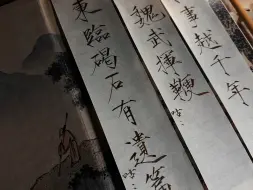 事越千年
魏武揮鞭
東臨碣石有遺篇